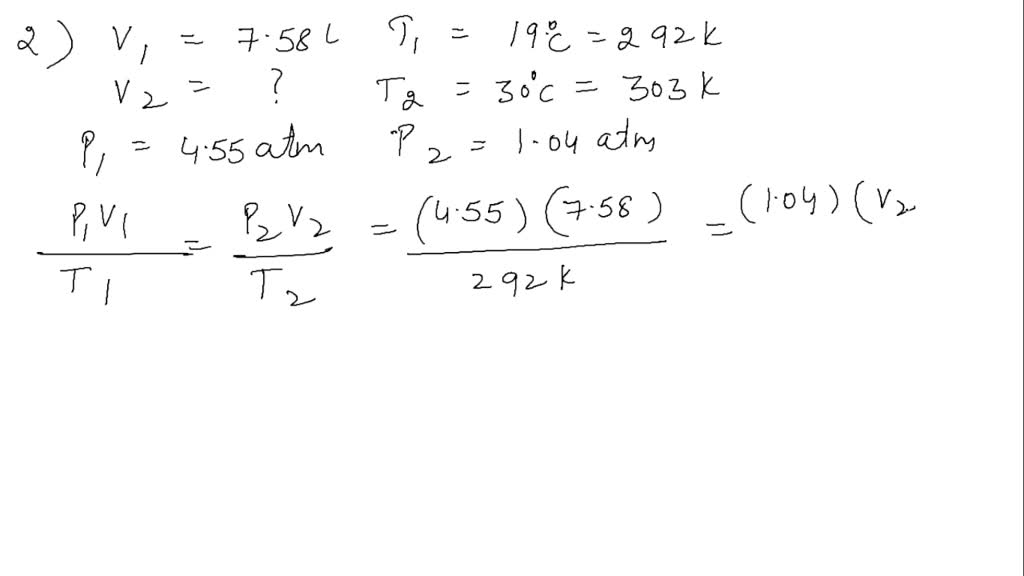 2) V₁ = 7.58 L T₁ = 19°C = 292 K
V₂ = ? T₂ = 30°C = 303 K
P₁ = 4.55 atm P₂ = 1.04 atm
P₁V₁ / T₁ = P₂V₂ / T₂ = (4.55) (7.58) / 292 K = (1.04) (V₂